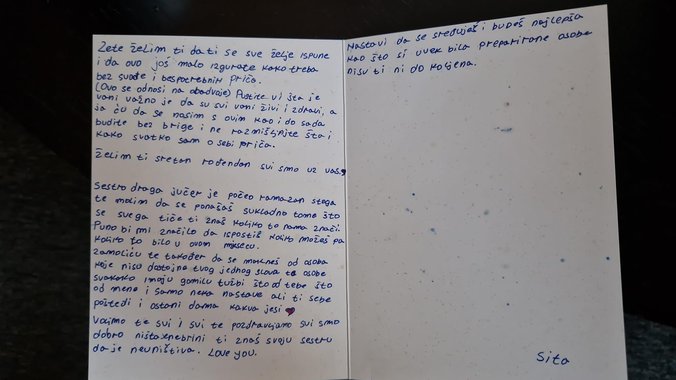 Zete želim ti da ti se sve želje ispune
i da ovo još malo izgurate kako treba
bez svađe i bespotrebnih priča.
(Ovo se odnosi na obadvoje) Pustite vi šta je
vani važno je da su svi vani živi i zdravi, a
ja ću da se nosim s ovim kao i do sada
budite bez brige i ne razmišljajte šta i
kako svatko sam o sebi priča.
Želim ti sretan rođendan svi smo uz vas
Sestro draga jučer je počeo ramazan stoga
te molim da se ponašaš sukladno tome što
se svega tiče ti znaš koliko to nama znači
Puno bi mi značilo da ispostiš koliko možeš pa
koliko to bilo u ovom mjesecu.
zamoliću te također da se makneš od osoba
koje nisu dostojne tvog jednog slova te osobe
svakako imaju gomilu tužbi što od tebe što
od mene i samo neka nastave ali ti sebe
poštedi i ostani dama kakva jesi
Volimo te svi i svi te pozdravljamo svi smo
dobro ništa nebrini ti znaš svoju sestru
da je neuništiva. Love you.
Nastavi da se sređuješ i budeš najlepša
kao što si uvek bila preparirane osobe
nisu ti ni do koljena.
Sita